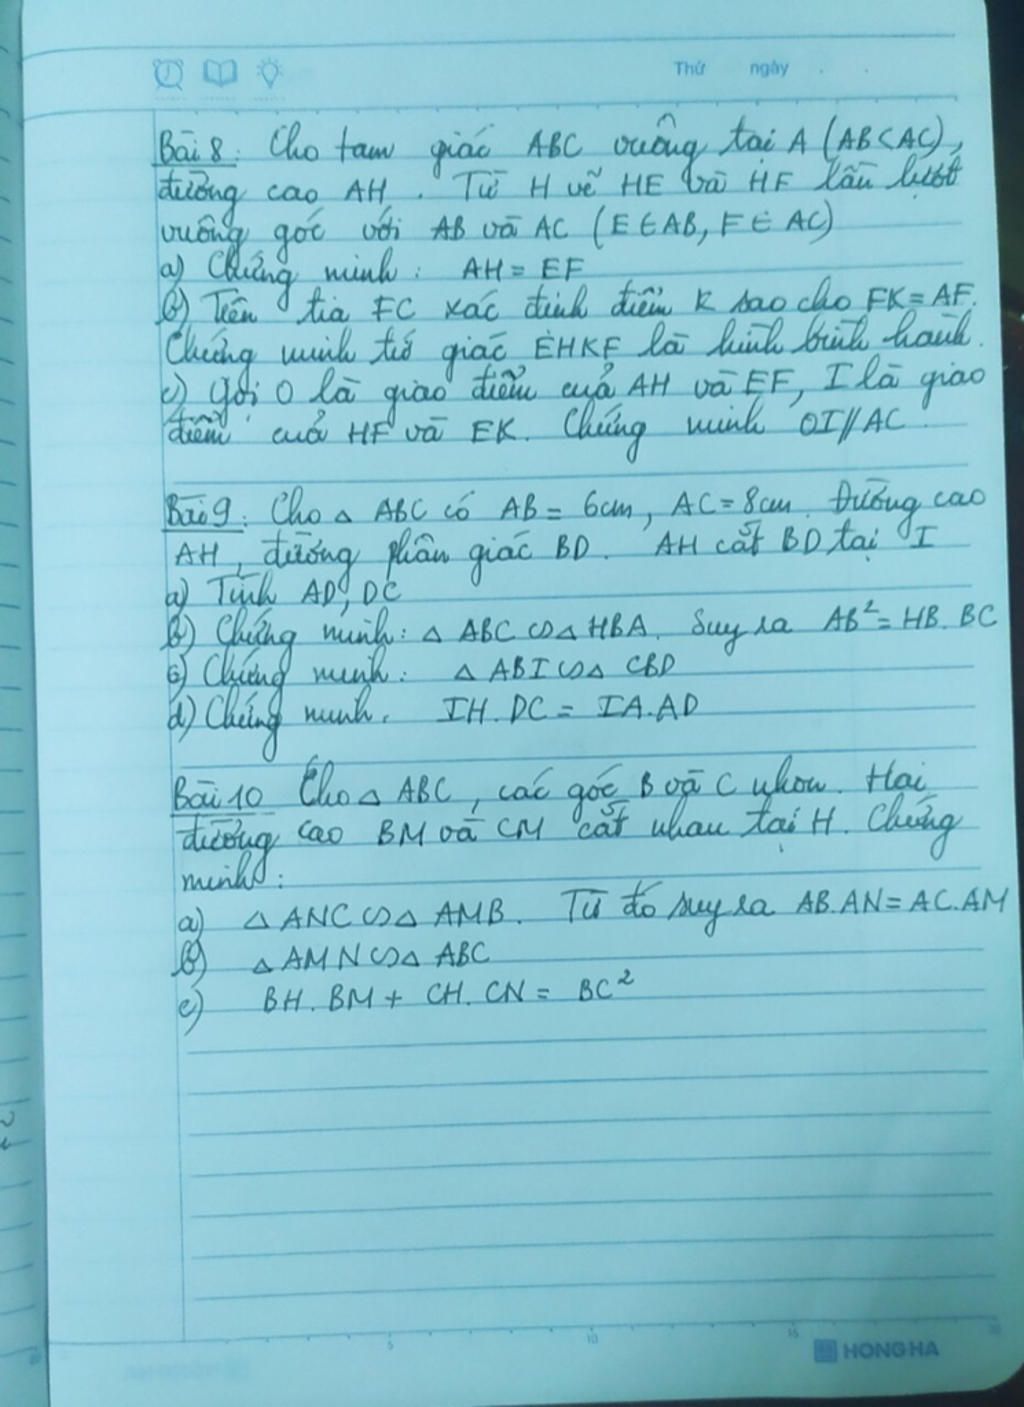 Thứ ngày
Bài 8: Cho tam giác ABC vuông tại A (AB<AC),
đường cao AH. Từ H vẽ HE và HF lần lượt
vuông góc với AB và AC (E∈AB, F∈AC)
a) Chứng minh: AH = EF
b) Trên tia FC xác định điểm K sao cho FK = AF.
Chứng minh tứ giác EHKF là hình bình hành.
c) Gọi O là giao điểm của AH và EF, I là giao
điểm của HF và EK. Chứng minh OI // AC.
Bài 9: Cho △ ABC có AB = 6cm, AC = 8cm. Đường cao
AH, đường phân giác BD. AH cắt BD tại I
a) Tính AD, DC
b) Chứng minh: △ ABC ∽ △ HBA. Suy ra AB² = HB. BC
c) Chứng minh: △ ABI ∽ △ CBD
d) Chứng minh: IH. DC = IA. AD
Bài 10 Cho △ ABC, các góc B và C nhọn. Hai
đường cao BM và CM cắt nhau tại H. Chứng
minh:
a) △ ANC ∽ △ AMB. Từ đó suy ra AB. AN = AC. AM
b) △ AMN ∽ △ ABC
c) BH. BM + CH. CN = BC²
5 10 15
HONG HA